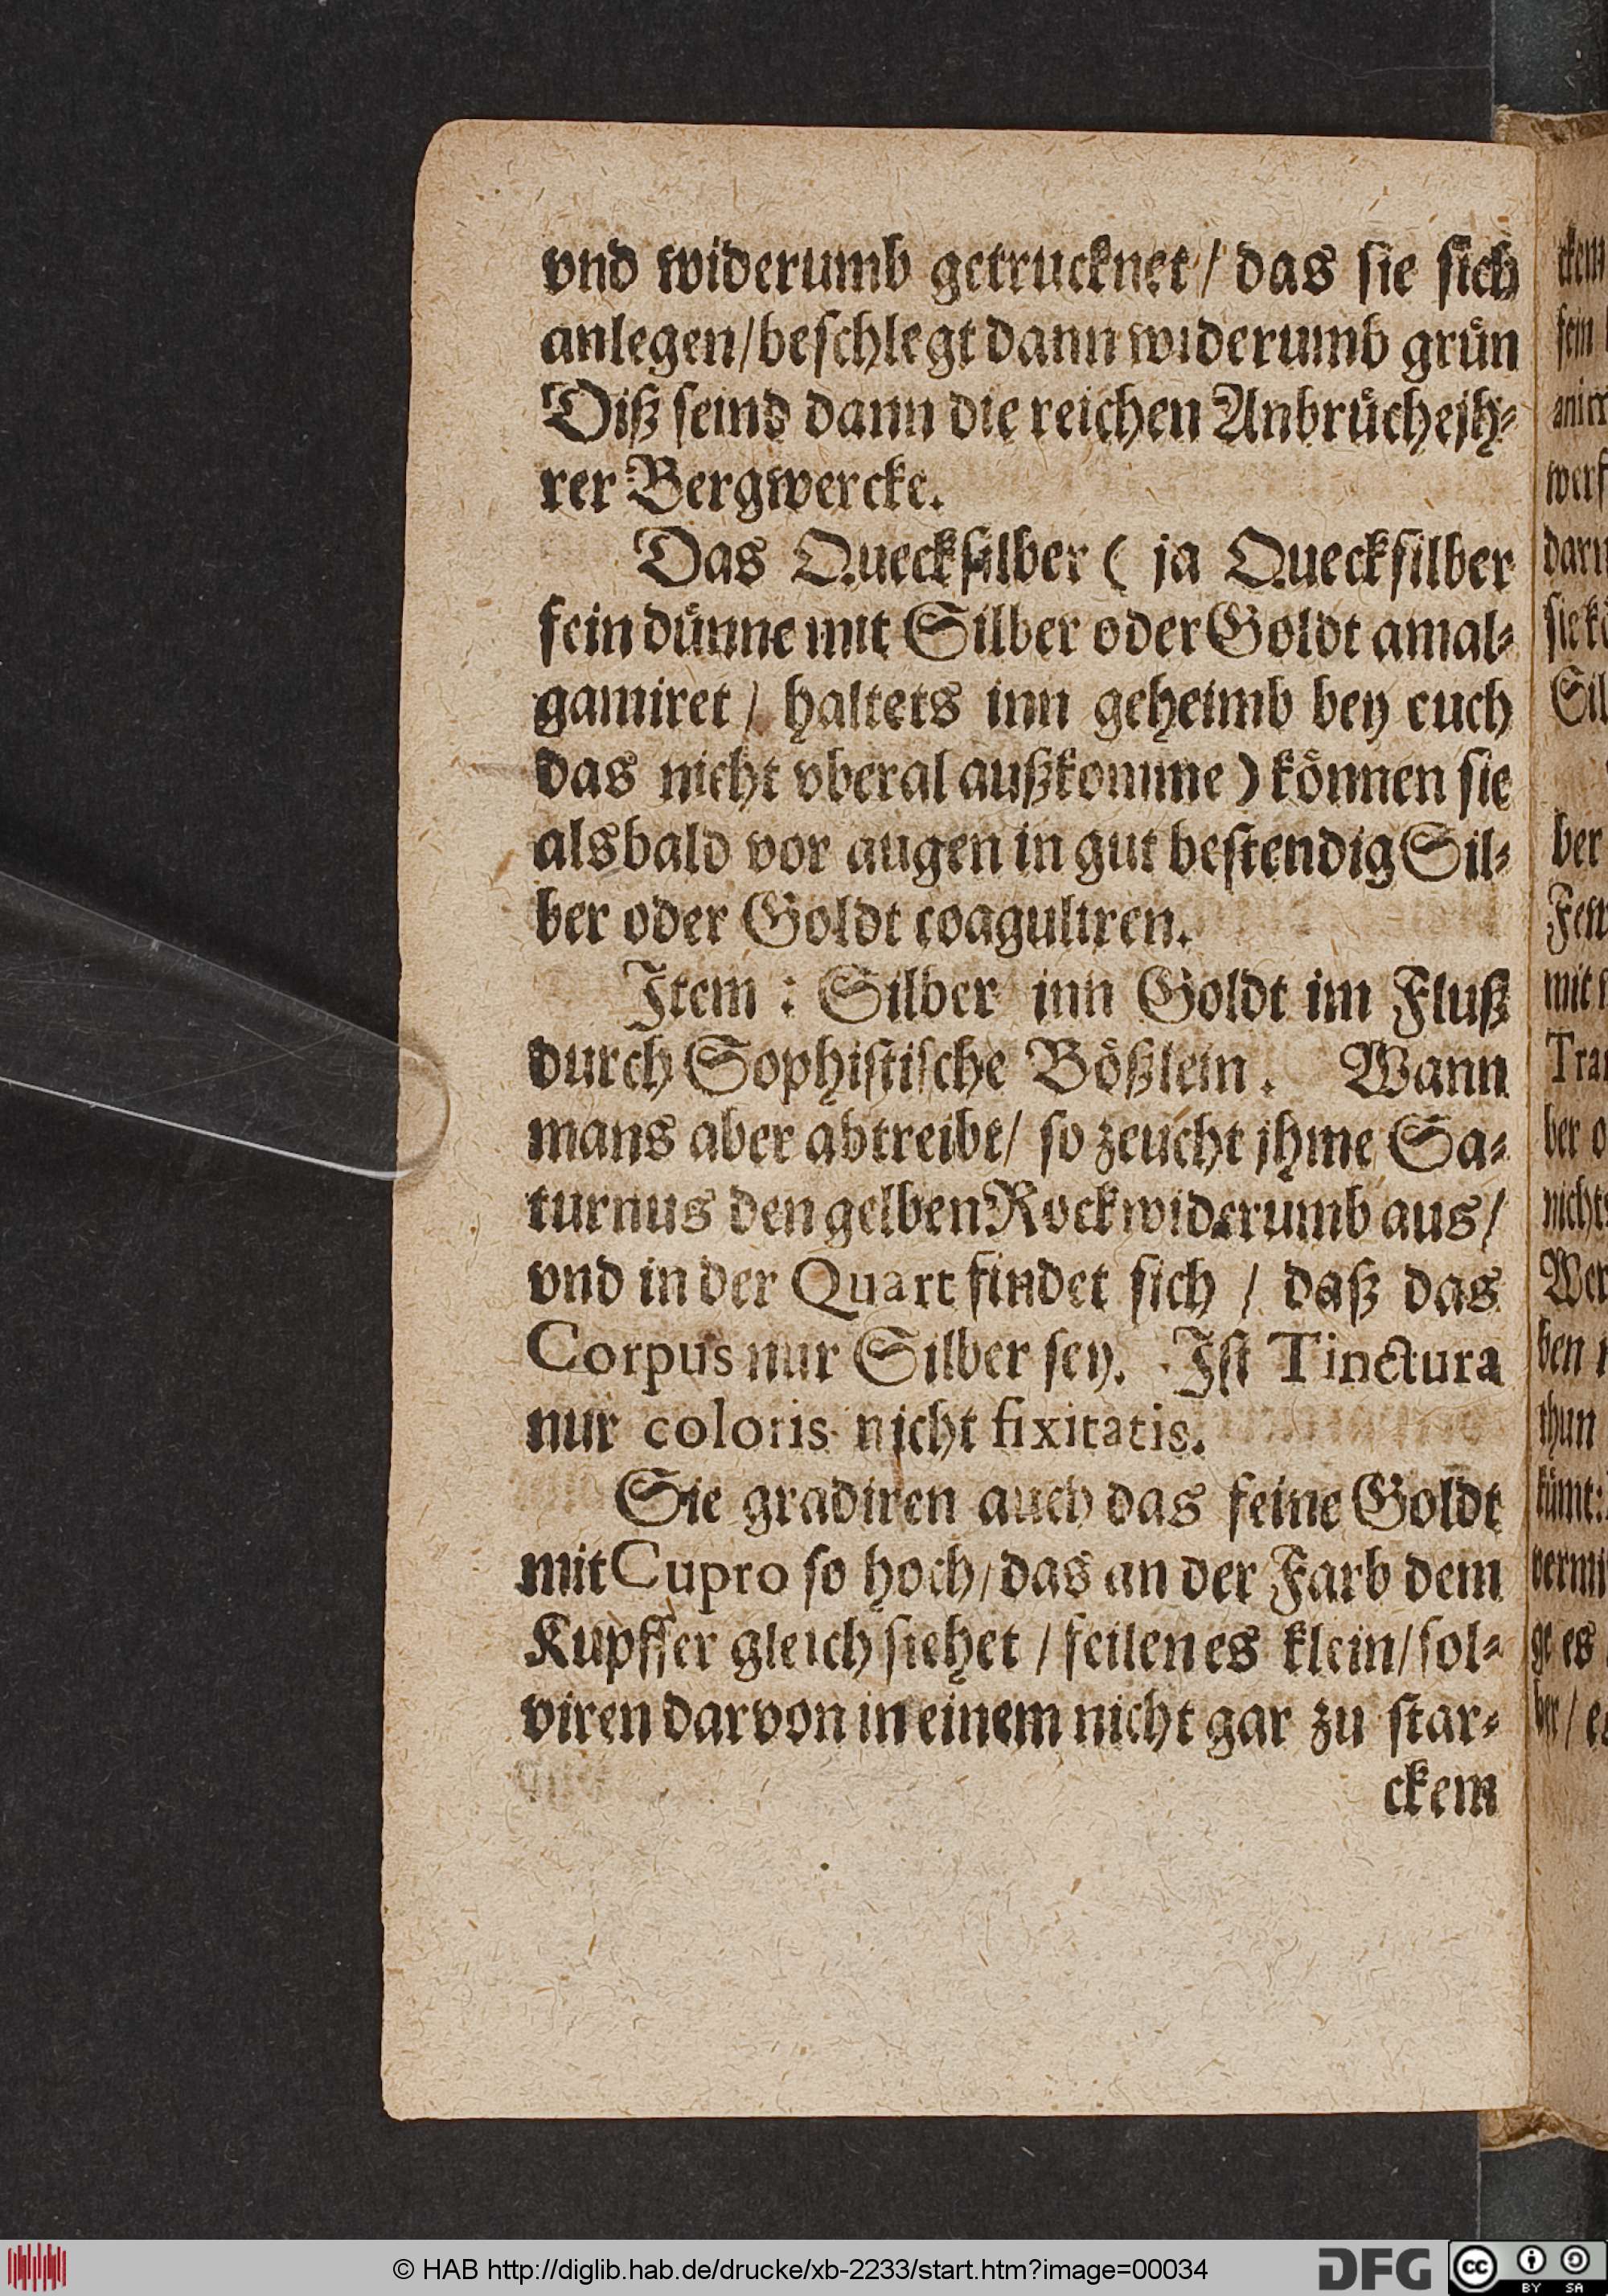 vnd widerumb getrucknet / das sie sich
anlegen/beschlegt dann widerumb grün
Diß seind dann die reichen Anbrüche jh-
rer Bergwercke.
Das Quecksilber ( ja Quecksilber
fein dünne mit Silber oder Goldt amal-
gamiret / haltets inn geheimb bey euch
das nicht vberal außkomme ) können sie
alsbald vor augen in gut bestendig Sil-
ber oder Goldt coaguliren.
Item : Silber inn Goldt im Fluß
durch Sophistische Bößlein. Wann
mans aber abtreibt/ so zeucht jhme Sa-
turnus den gelben Rock widerumb aus /
vnd in der Quart findet sich / daß das
Corpus nur Silber sey. Ist Tinctura
nur coloris nicht fixitatis.
Sie gradiren auch das feine Goldt
mit Cupro so hoch/das an der Farb dem
Kupffer gleich siehet / feilen es klein/sol-
viren darvon in einem nicht gar zu star-
ckem
© HAB http://diglib.hab.de/drucke/xb-2233/start.htm?image=00034
DFG
cc BY SA